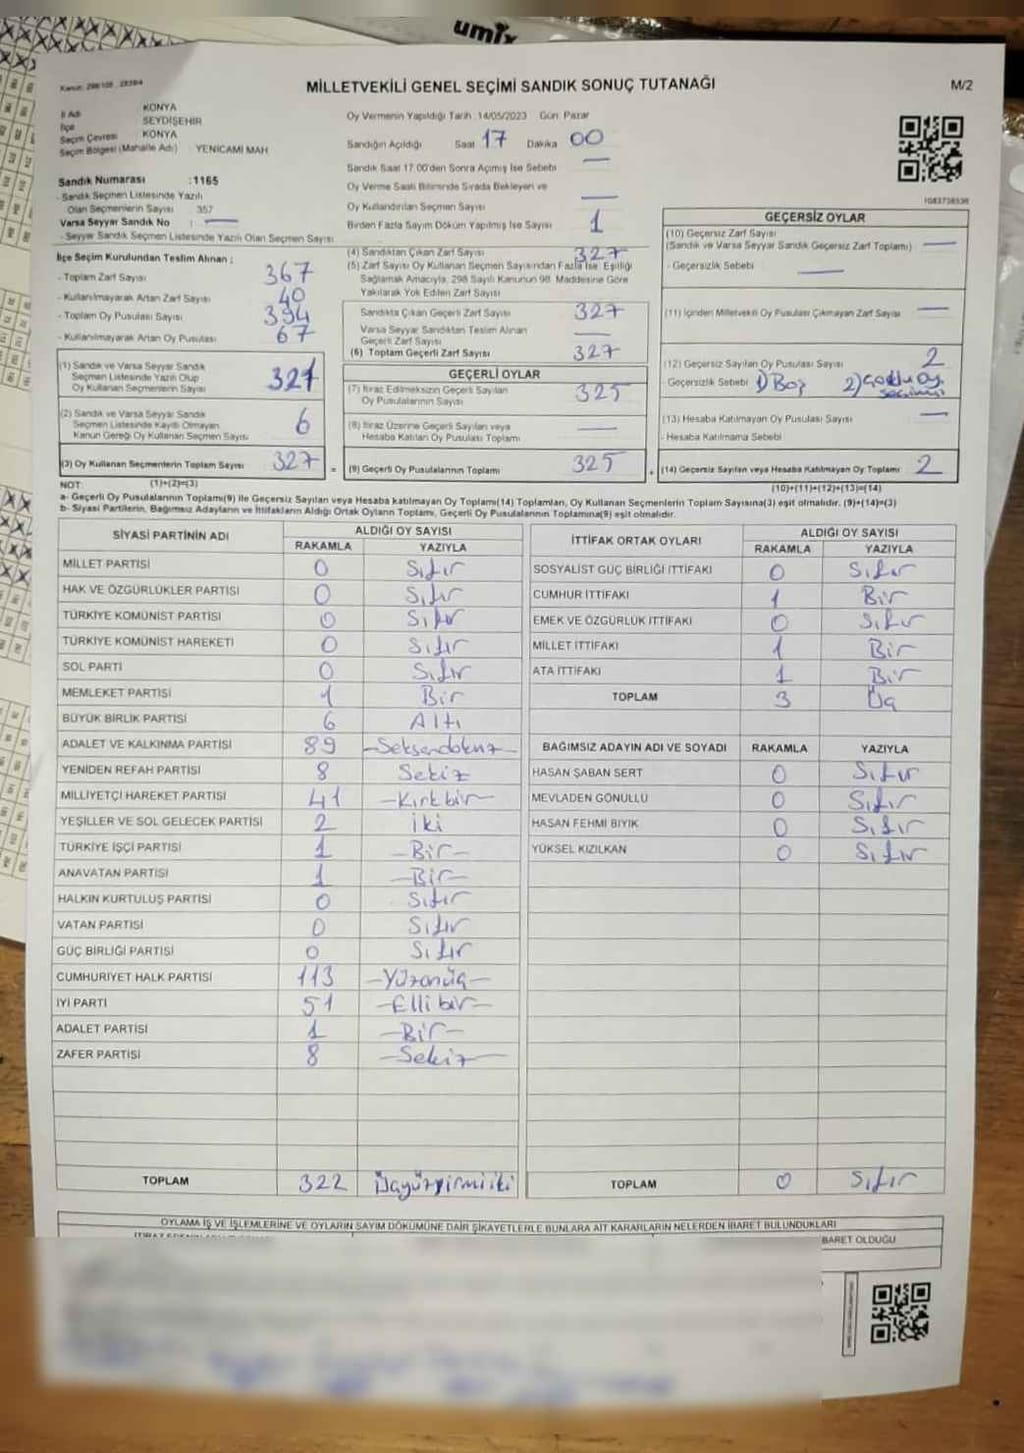 umix
Kanun: 298/105 - 2839/4
MİLLETVEKİLİ GENEL SEÇİMİ SANDIK SONUÇ TUTANAĞI
M/2
İl Adı KONYA
İlçe SEYDİŞEHİR
Seçim Çevresi KONYA
Seçim Bölgesi (Mahalle Adı) YENİCAMİ MAH
Sandık Numarası :1165
- Sandık Seçmen Listesinde Yazılı
Olan Seçmenlerin Sayısı 357
Varsa Seyyar Sandık No : —
- Seyyar Sandık Seçmen Listesinde Yazılı Olan Seçmen Sayısı
İlçe Seçim Kurulundan Teslim Alınan ;
- Toplam Zarf Sayısı 367
- Kullanılmayarak Artan Zarf Sayısı 40
- Toplam Oy Pusulası Sayısı 394
- Kullanılmayarak Artan Oy Pusulası 67
(1) Sandık ve Varsa Seyyar Sandık
Seçmen Listesinde Yazılı Olup
Oy Kullanan Seçmenlerin Sayısı 321
(2) Sandık ve Varsa Seyyar Sandık
Seçmen Listesinde Kayıtlı Olmayan
Kanun Gereği Oy Kullanan Seçmen Sayısı 6
(3) Oy Kullanan Seçmenlerin Toplam Sayısı 327
(1)+(2)=(3)
Oy Vermenin Yapıldığı Tarih :14/05/2023 Gün: Pazar
Sandığın Açıldığı Saat 17 Dakika 00
Sandık Saat 17:00'den Sonra Açılmış İse Sebebi —
Oy Verme Saati Bitiminde Sırada Bekleyen ve
Oy Kullandırılan Seçmen Sayısı —
Birden Fazla Sayım Döküm Yapılmış İse Sayısı 1
(4) Sandıktan Çıkan Zarf Sayısı 327
(5) Zarf Sayısı Oy Kullanan Seçmen Sayısından Fazla İse, Eşitliği
Sağlamak Amacıyla, 298 Sayılı Kanunun 98. Maddesine Göre
Yakılarak Yok Edilen Zarf Sayısı
Sandıkta Çıkan Geçerli Zarf Sayısı 327
Varsa Seyyar Sandıktan Teslim Alınan
Geçerli Zarf Sayısı —
(6) Toplam Geçerli Zarf Sayısı 327
GEÇERLİ OYLAR
(7) İtiraz Edilmeksizin Geçerli Sayılan
Oy Pusulalarının Sayısı 325
(8) İtiraz Üzerine Geçerli Sayılan veya
Hesaba Katılan Oy Pusulası Toplamı —
(9) Geçerli Oy Pusulalarının Toplamı 325
1083738536
GEÇERSİZ OYLAR
(10) Geçersiz Zarf Sayısı
(Sandık ve Varsa Seyyar Sandık Geçersiz Zarf Toplamı) —
- Geçersizlik Sebebi —
(11) İçinden Milletvekili Oy Pusulası Çıkmayan Zarf Sayısı —
(12) Geçersiz Sayılan Oy Pusulası Sayısı 2
- Geçersizlik Sebebi 1) Boş 2) Çoklu oy
seçimi
(13) Hesaba Katılmayan Oy Pusulası Sayısı —
- Hesaba Katılmama Sebebi
(14) Geçersiz Sayılan veya Hesaba Katılmayan Oy Toplamı 2
(10)+(11)+(12)+(13)=(14)
NOT:
a- Geçerli Oy Pusulalarının Toplamı(9) ile Geçersiz Sayılan veya Hesaba katılmayan Oy Toplamı(14) Toplamları, Oy Kullanan Seçmenlerin Toplam Sayısına(3) eşit olmalıdır. (9)+(14)=(3)
b- Siyasi Partilerin, Bağımsız Adayların ve İttifakların Aldığı Ortak Oyların Toplamı, Geçerli Oy Pusulalarının Toplamına(9) eşit olmalıdır.
SİYASİ PARTİNİN ADI ALDIĞI OY SAYISI
RAKAMLA YAZIYLA
MİLLET PARTİSİ 0 Sıfır
HAK VE ÖZGÜRLÜKLER PARTİSİ 0 Sıfır
TÜRKİYE KOMÜNİST PARTİSİ 0 Sıfır
TÜRKİYE KOMÜNİST HAREKETİ 0 Sıfır
SOL PARTİ 0 Sıfır
MEMLEKET PARTİSİ 1 Bir
BÜYÜK BİRLİK PARTİSİ 6 Altı
ADALET VE KALKINMA PARTİSİ 89 -Seksendokuz-
YENİDEN REFAH PARTİSİ 8 Sekiz
MİLLİYETÇİ HAREKET PARTİSİ 41 -Kırkbir-
YEŞİLLER VE SOL GELECEK PARTİSİ 2 iki
TÜRKİYE İŞÇİ PARTİSİ 1 -Bir-
ANAVATAN PARTİSİ 1 -Bir-
HALKIN KURTULUŞ PARTİSİ 0 Sıfır
VATAN PARTİSİ 0 Sıfır
GÜÇ BİRLİĞİ PARTİSİ 0 Sıfır
CUMHURİYET HALK PARTİSİ 113 -Yüzonüç-
İYİ PARTİ 51 -Elli bir-
ADALET PARTİSİ 1 -Bir-
ZAFER PARTİSİ 8 -Sekiz-
TOPLAM 322 Üçyüzyirmiiki
İTTİFAK ORTAK OYLARI ALDIĞI OY SAYISI
RAKAMLA YAZIYLA
SOSYALİST GÜÇ BİRLİĞİ İTTİFAKI 0 Sıfır
CUMHUR İTTİFAKI 1 Bir
EMEK VE ÖZGÜRLÜK İTTİFAKI 0 Sıfır
MİLLET İTTİFAKI 1 Bir
ATA İTTİFAKI 1 Bir
TOPLAM 3 Üç
BAĞIMSIZ ADAYIN ADI VE SOYADI RAKAMLA YAZIYLA
HASAN ŞABAN SERT 0 Sıfır
MEVLADEN GÖNÜLLÜ 0 Sıfır
HASAN FEHMİ BIYIK 0 Sıfır
YÜKSEL KIZILKAN 0 Sıfır
TOPLAM 0 Sıfır
OYLAMA İŞ VE İŞLEMLERİNE VE OYLARIN SAYIM DÖKÜMÜNE DAİR ŞİKAYETLERLE BUNLARA AİT KARARLARIN NELERDEN İBARET BULUNDUKLARI
BARET OLDUĞU